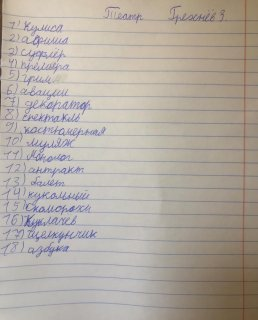 Театр Грехнёв З.
1) Кулиса
2) афиша
3) суфлёр
4) премьера
5) грим
6) авации
7) декоратор
8) спектакль
9) костюмерная
10) муляж
11) Монолог
12) антракт
13) балет
14) кукольный
15) Скоморохи
16) Куклачев
17) Щелкунчик
18) азбука